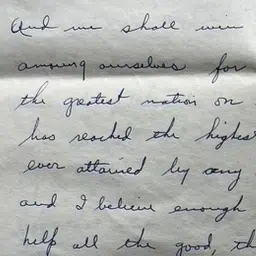 And we shall win
among ourselves for
the greatest nation on
has reached the highest
ever attained by any
and I believe enough
help all the good, th